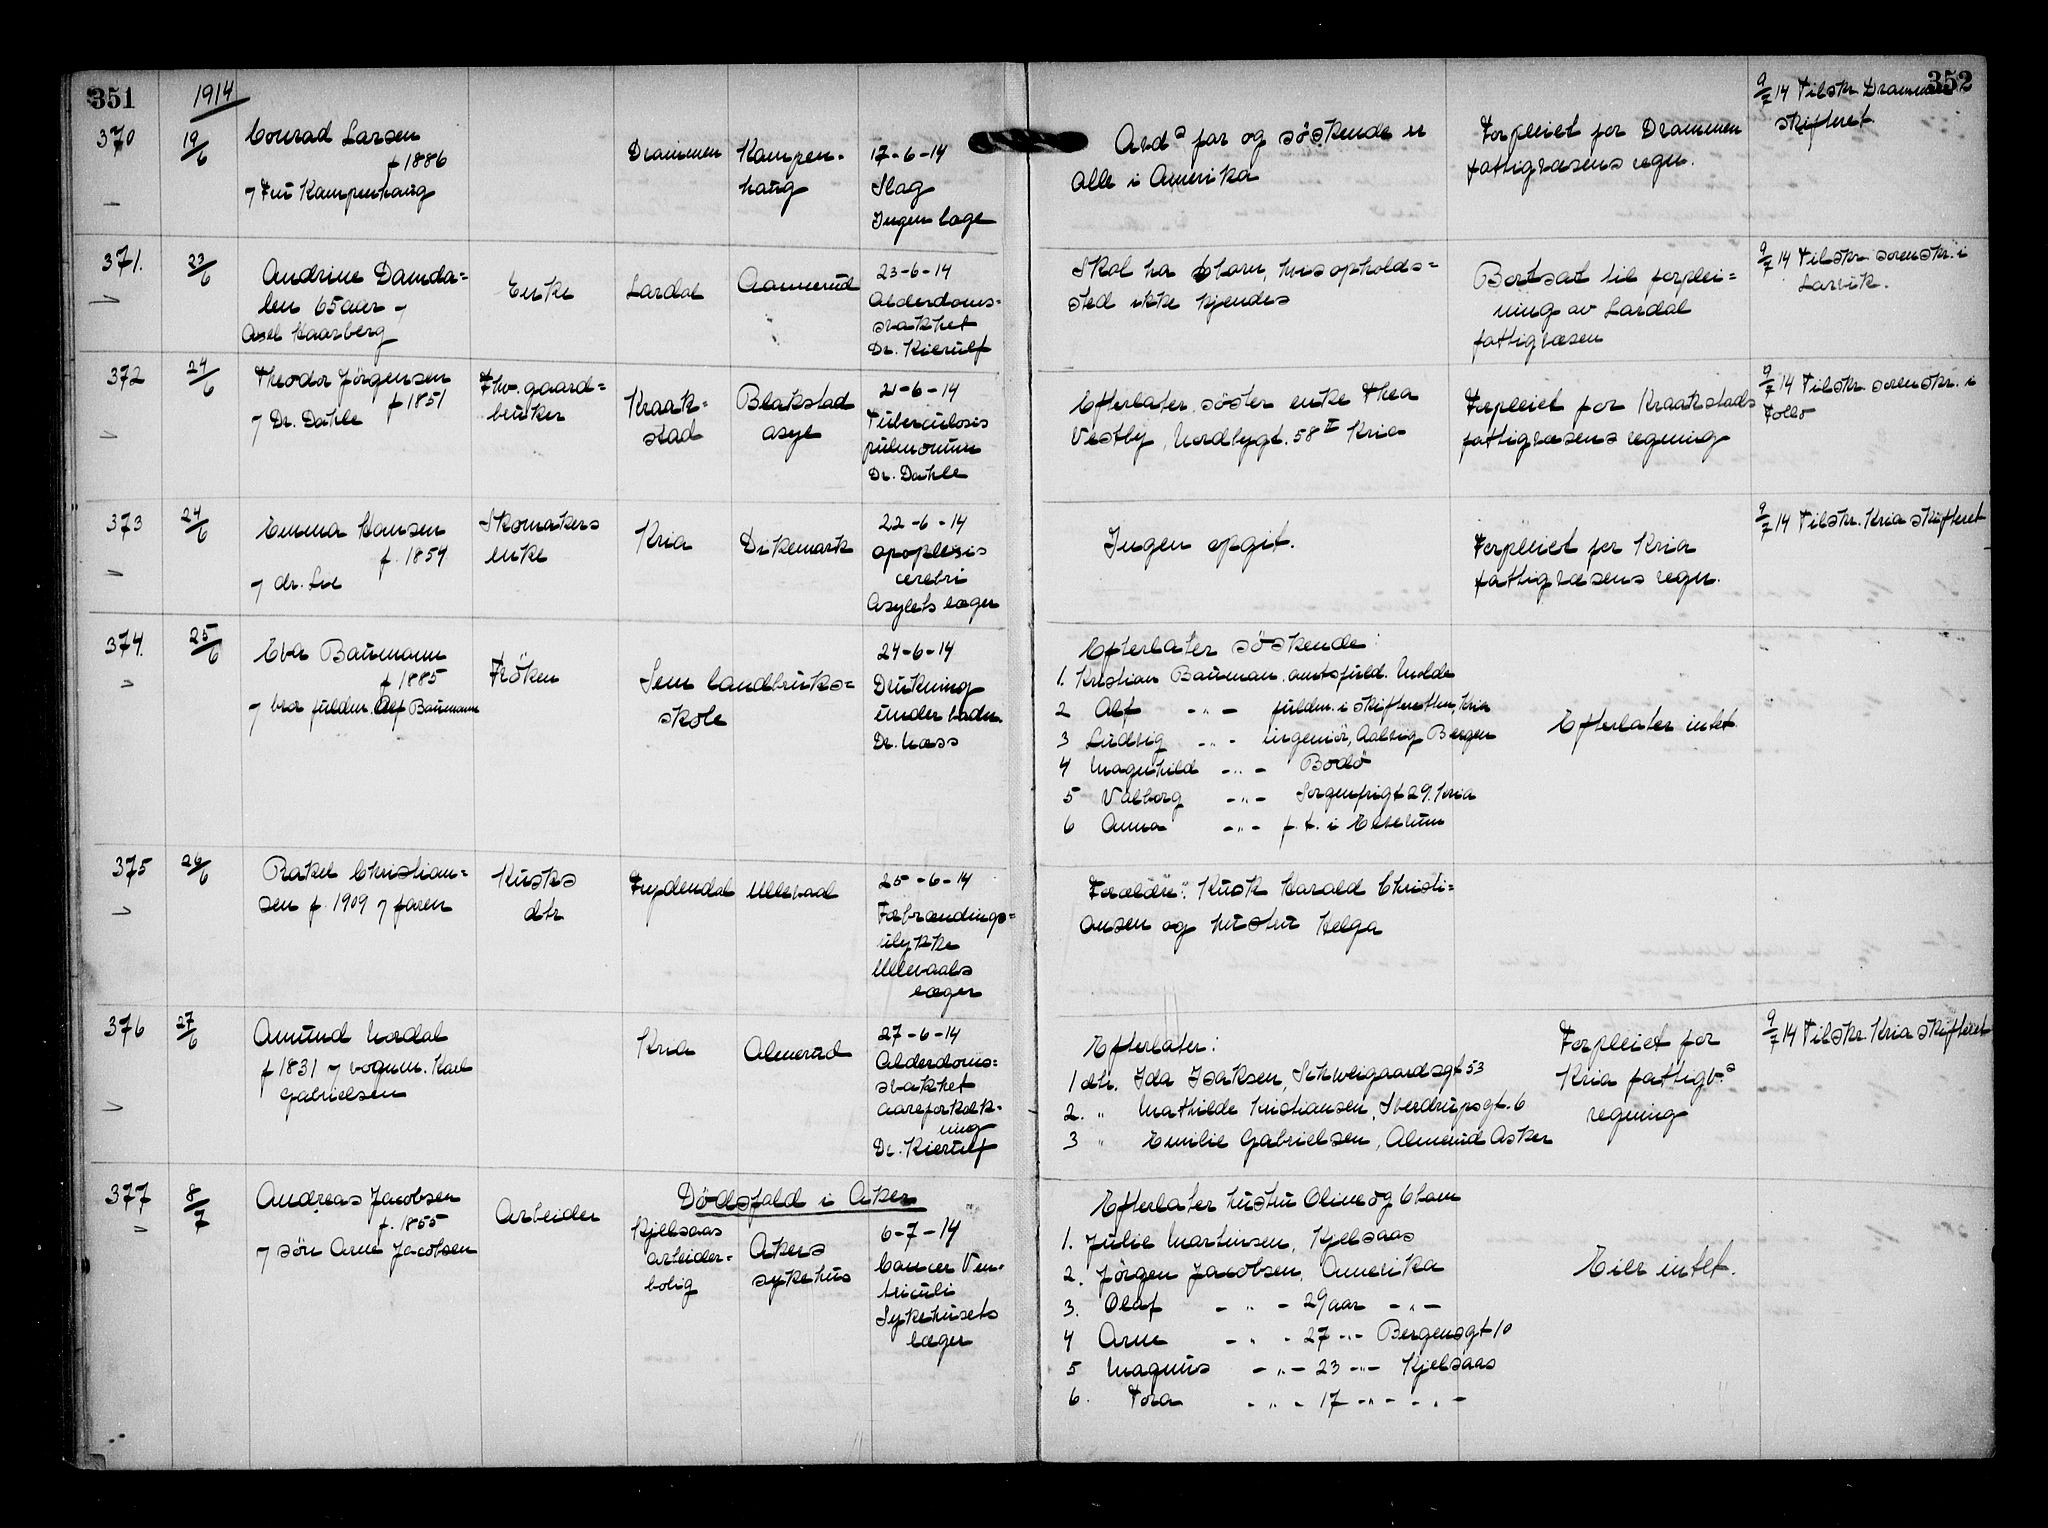 351
1914
352
370
19/6
Conrad Larsen
f 1886
7 Fru Kampenhaug
Drammen
Kampen-
haug
17-6-14
Slag
Ingen læge
Avds far og söskende er
alle i Amerika
Forpleiet for Drammen
fattigvæsens regn.
9/7 14 Tilskr. Drammens
skifteret
371.
23/6
Andrine Damda=
len 65 aar 7
Axel Haarberg
Enke
Lardal
Aamerud
23-6-14
Alderdoms=
svakhet
Dr. Kierulf
Skal ha 6 barn, hvis opholds=
sted ikke kjendes
Bortsat til forplei=
ning av Lardal
fattigvæsen
9/7 14 Tilskr. sorenskr. i
Larvik.
372
24/6
Theodor Jörgensen
f 1851
7 Dr. Dahle
Fhv. gaard=
bruker
Kraak=
stad
Blakstad
asyl
21-6-14
Tuberculosis
pulmonum
Dr. Dahle
Efterlater söster enke Thea
Vestby, Nordbygt. 58 II Kria
Forpleiet for Kraakstads
fattigvæsens regning
9/7 14 Tilskr. sorenskr. i
Follo
373
24/6
Emma Hansen
f. 1854
7 dr. Lie
Skomakers
enke
Kria
Dikemark
22-6-14
apoplexis
cerebri
Asylets læger
Ingen opgit.
Forpleiet for Kria
fattigvæsens regn.
9/7 14 Tilskr. Kria skifteret
374.
25/6
Eva Baumann
f 1885
7 bror fuldm. Alf Baumann
Fröken
Sem landbruks=
skole
24-6-14
Drukning
under badn.
Dr. Næss
Efterlater söskende:
1. Kristian Bauman. amtsfuldm. Molde
2 Alf -"- fuldm. i skifteretten, Kria
3 Ludvig -"- ingeniör, Bergen
4 Magnhild -"- Bodö
5 Valborg -"- Sorgenfrigt 29. Kria
6 Anna -"- f.t. i
Efterlater intet
375
26/6
Rakel Christian=
sen f. 1909 7 faren
Kusks
dtr
Frydendal
Ullevaal
25-6-14
Forbrændings=
ulykke
Ullevaals
læger
Forældre: Kusk Harald Christi=
ansen og hustru Helga
376
27/6
Amund Nordal
f 1831 7 vognm. Karl
Gabrielsen
Kria
Almerud
27-6-14
Alderdoms=
svakhet
aareforkalk-
ning
Dr. Kierulf
Efterlater:
1 dtr. Ida Isaksen, Schweigaardsgt 53
2. " Mathilde Kristiansen, Sverdrupsgt. 6
3 " Emilie Gabrielsen, Almerud Asker
Forpleiet for
Kria fattigv.s
regning
9/7 14 Tilskr. Kria skifteret
377
8/7
Andreas Jacobsen
f. 1855
7 sön Arne Jacobsen
Arbeider
Dödsfald i Aker
Kjelsaas
arbeider-
bolig
Akers
sykehus
6-7-14
Cancer Ven-
triculi
Sykehusets
læger
Efterlater hustru Oline og 6 barn
1. Julie Martinsen, Kjelsaas
2. Jörgen Jacobsen, Amerika
3. Olaf -"- 29 aar -"-
4 Arne -"- 27 -"- Bergensgt 10
5 Magnus -"- 23 -"- Kjelsaas
6. Tora -"- 17 -"- -"-
Eier intet.